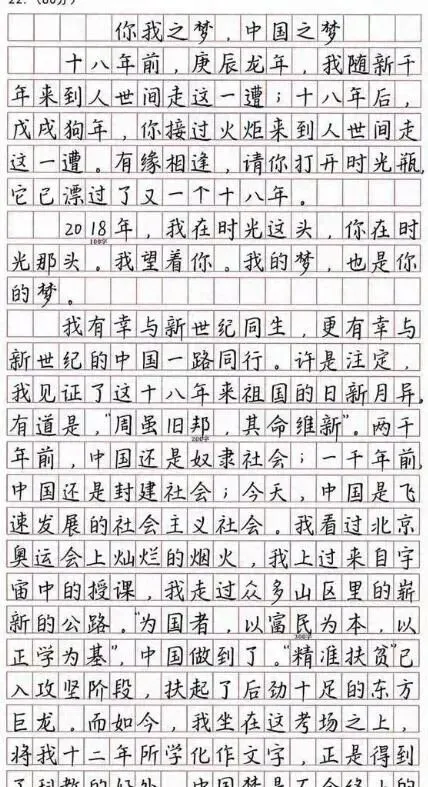 22.（60分）
你我之梦，中国之梦
十八年前，庚辰龙年，我随新千
年来到人世间走这一遭；十八年后，
戊戌狗年，你接过火炬来到人世间走
这一遭。有缘相逢，请你打开时光瓶，
它已漂过了又一个十八年。
2018年，我在时光这头，你在时
100字
光那头。我望着你。我的梦，也是你
的梦。
我有幸与新世纪同生，更有幸与
新世纪的中国一路同行。许是注定，
我见证了这十八年来祖国的日新月异。
有道是，“周虽旧邦，其命维新”。两千
200字
年前，中国还是奴隶社会；一千年前，
中国还是封建社会；今天，中国是飞
速发展的社会主义社会。我看过北京
奥运会上灿烂的烟火，我上过来自宇
宙中的授课，我走过众多山区里的崭
新的公路。“为国者，以富民为本，以
300字
正学为基”，中国做到了。“精准扶贫”已
入攻坚阶段，扶起了后劲十足的东方
巨龙。而如今，我坐在这考场之上，
将我十二年所学化作文字，正是得到
了科教的好处。中国梦是不会终止的